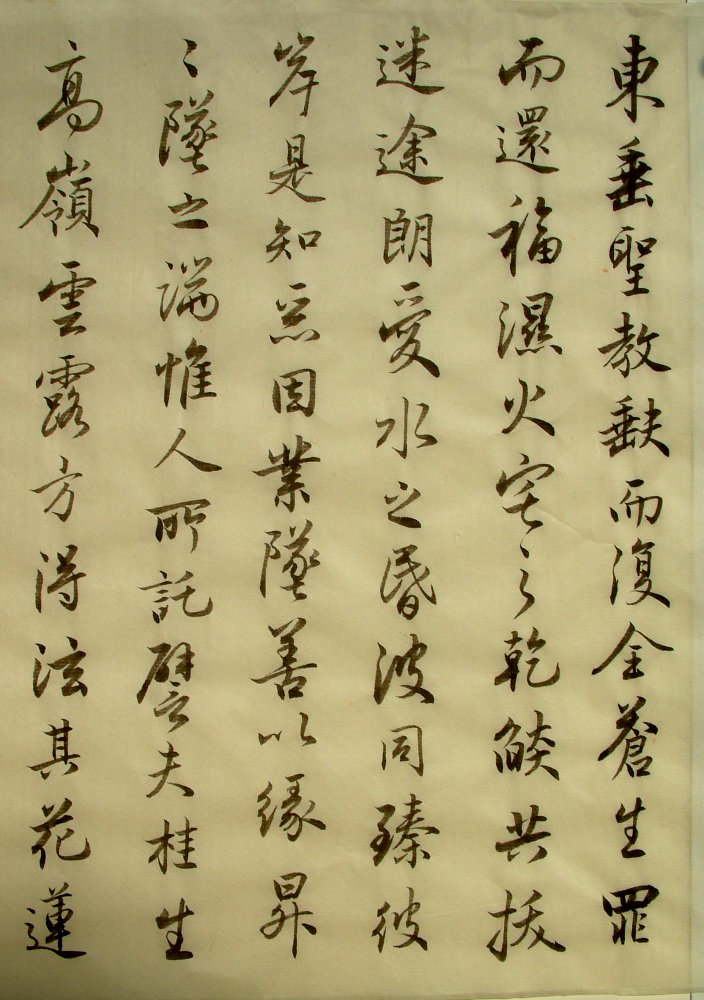 東垂聖教缺而復全蒼生罪
而還福濕火宅之乾燄共拔
迷途朗愛水之昬波同臻彼
岸是知惡因業墜善以緣昇
〻墜之端惟人所託譬夫桂生
高嶺雲露方得泫其花蓮